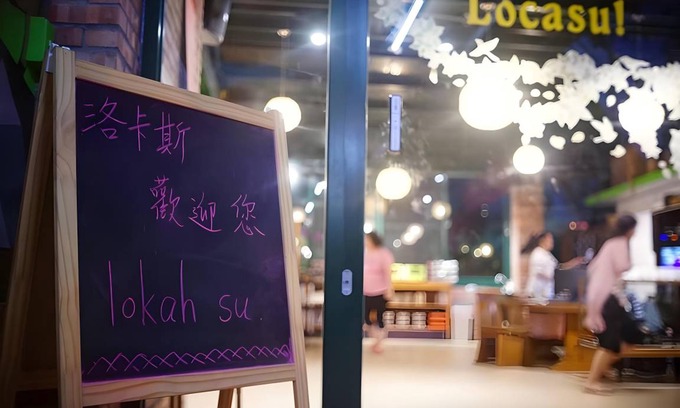 Locasu!
洛卡斯
歡迎您
lokah su.